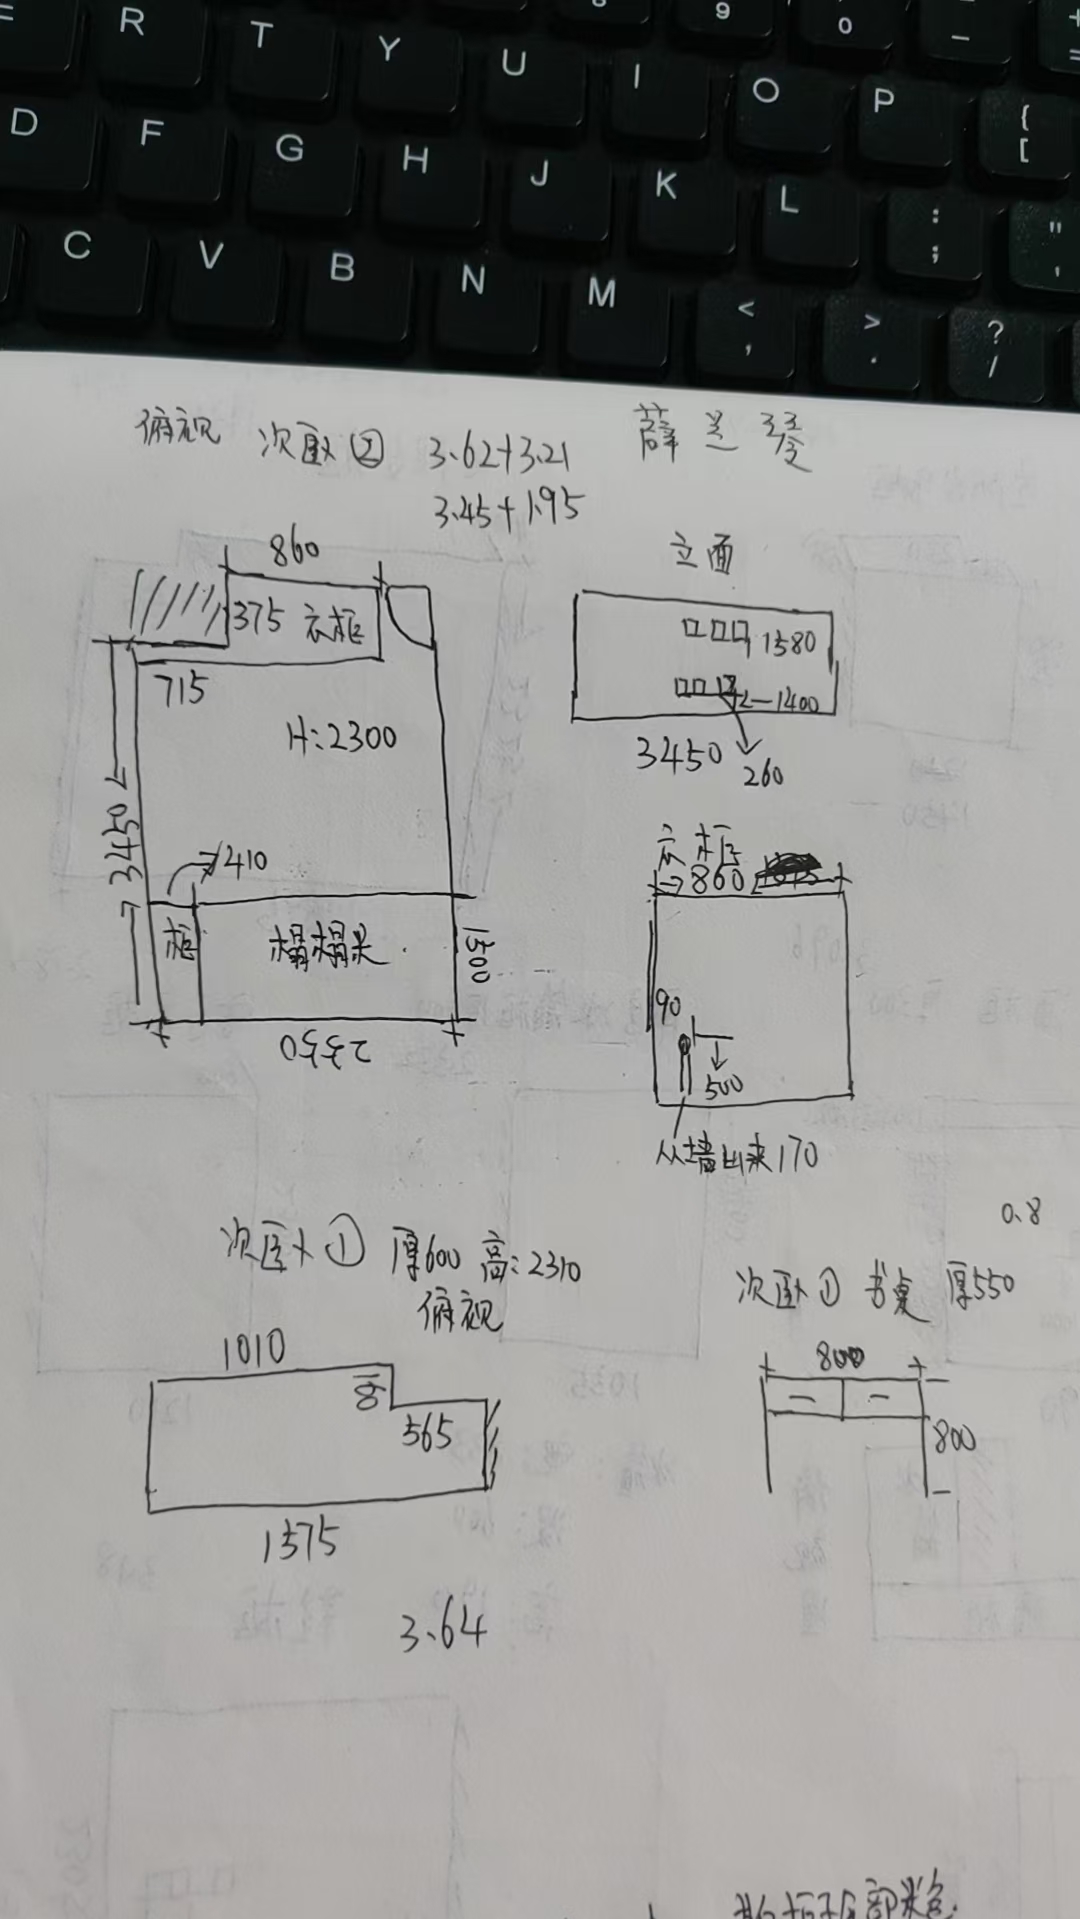 R T Y U I O P { [
D F G H J K L : ; " '
C V B N M < , > . ? /
9 0 _ - + =
俯视 次卧② 3.62+3.21
3.45+1.95
薛兰琴
860
375 衣柜
715
H:2300
3450
410
柜 榻榻米
1500
2330
立面
1380
1400
3450
260
衣柜
860
90
500
从墙出来170
次卧① 厚600 高:2310
俯视
1010
565
1575
3.64
0.8
次卧① 书桌 厚550
800
800